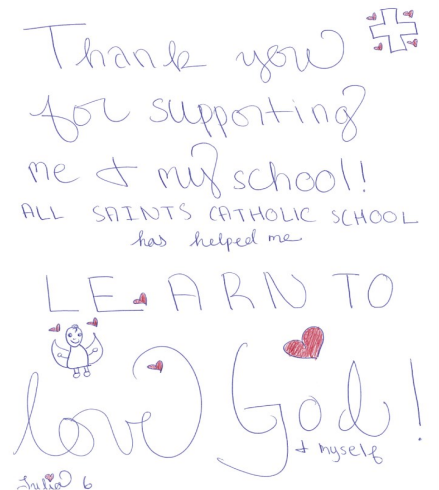 Thank you
for supporting
me & my school!
ALL SAINTS CATHOLIC SCHOOL
has helped me
LEARN TO
love God!
& myself
Julia 6